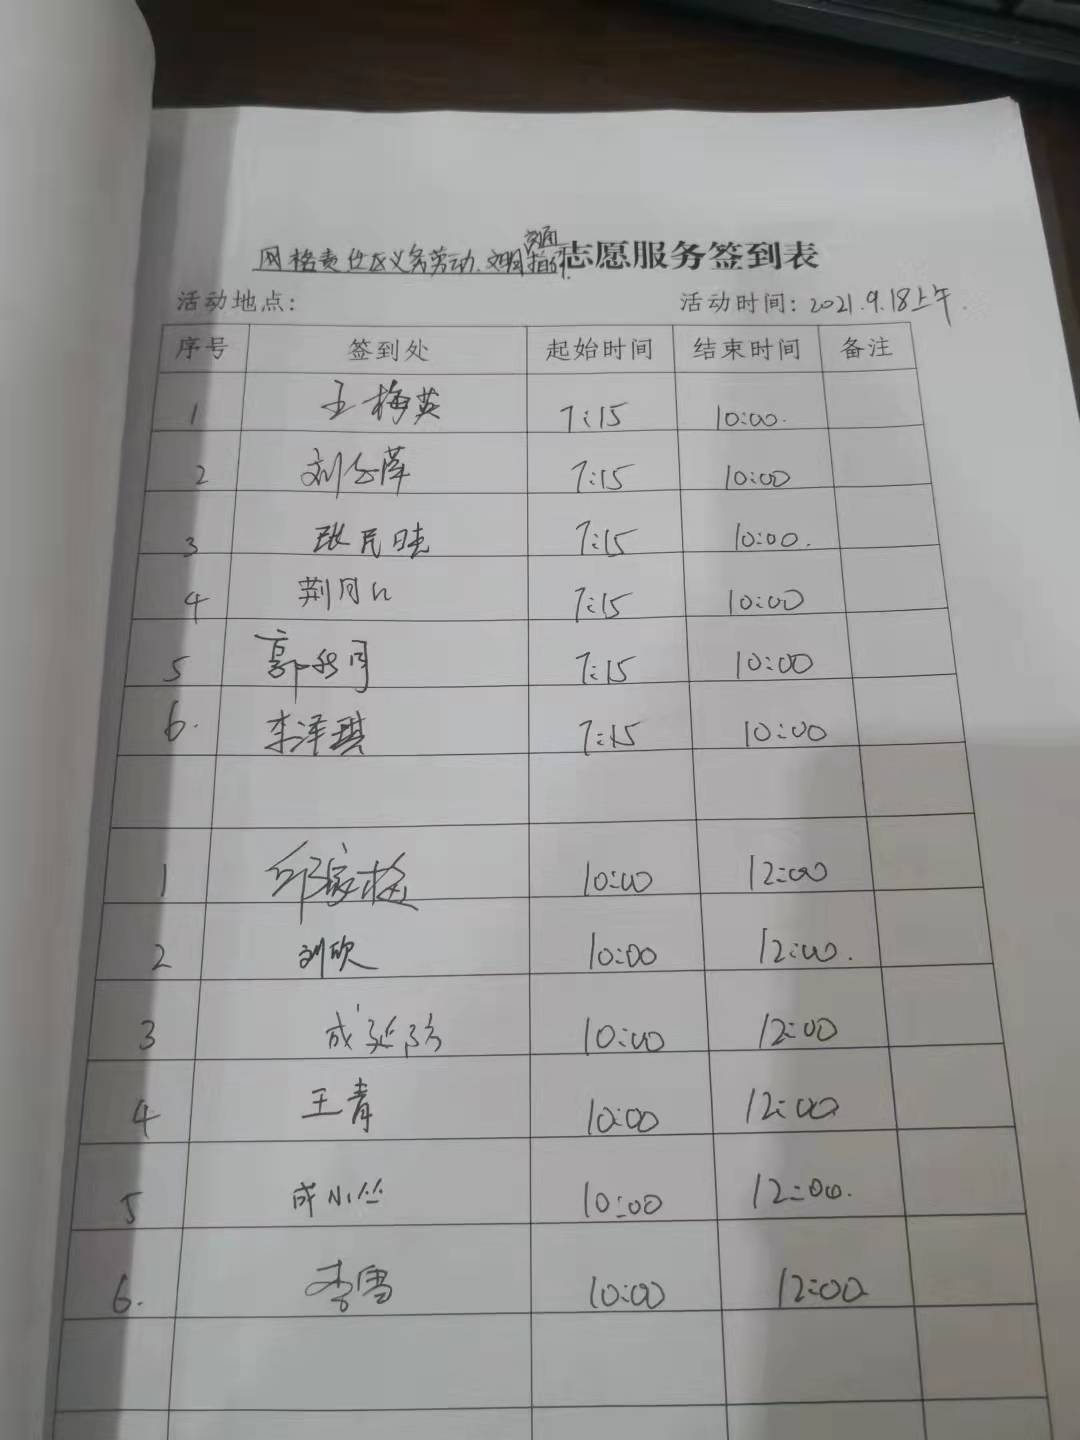 交通
网格责任区义务劳动.文明指引.志愿服务签到表
活动地点: 活动时间: 2021.9.18上午.
序号 签到处 起始时间 结束时间 备注
1 王梅英 7:15 10:00.
2 刘 萍 7:15 10:00
3 张民旺 7:15 10:00.
4 荆月 7:15 10:00
5 郭 7:15 10:00
6. 李泽琪 7:15 10:00
1 邱家梅 10:00 12:00
2 刘欣 10:00 12:00.
3 成延 10:00 12:00
4 王青 10:00 12:00
5 成小丛 10:00 12:00.
6. 李雪 10:00 12:00